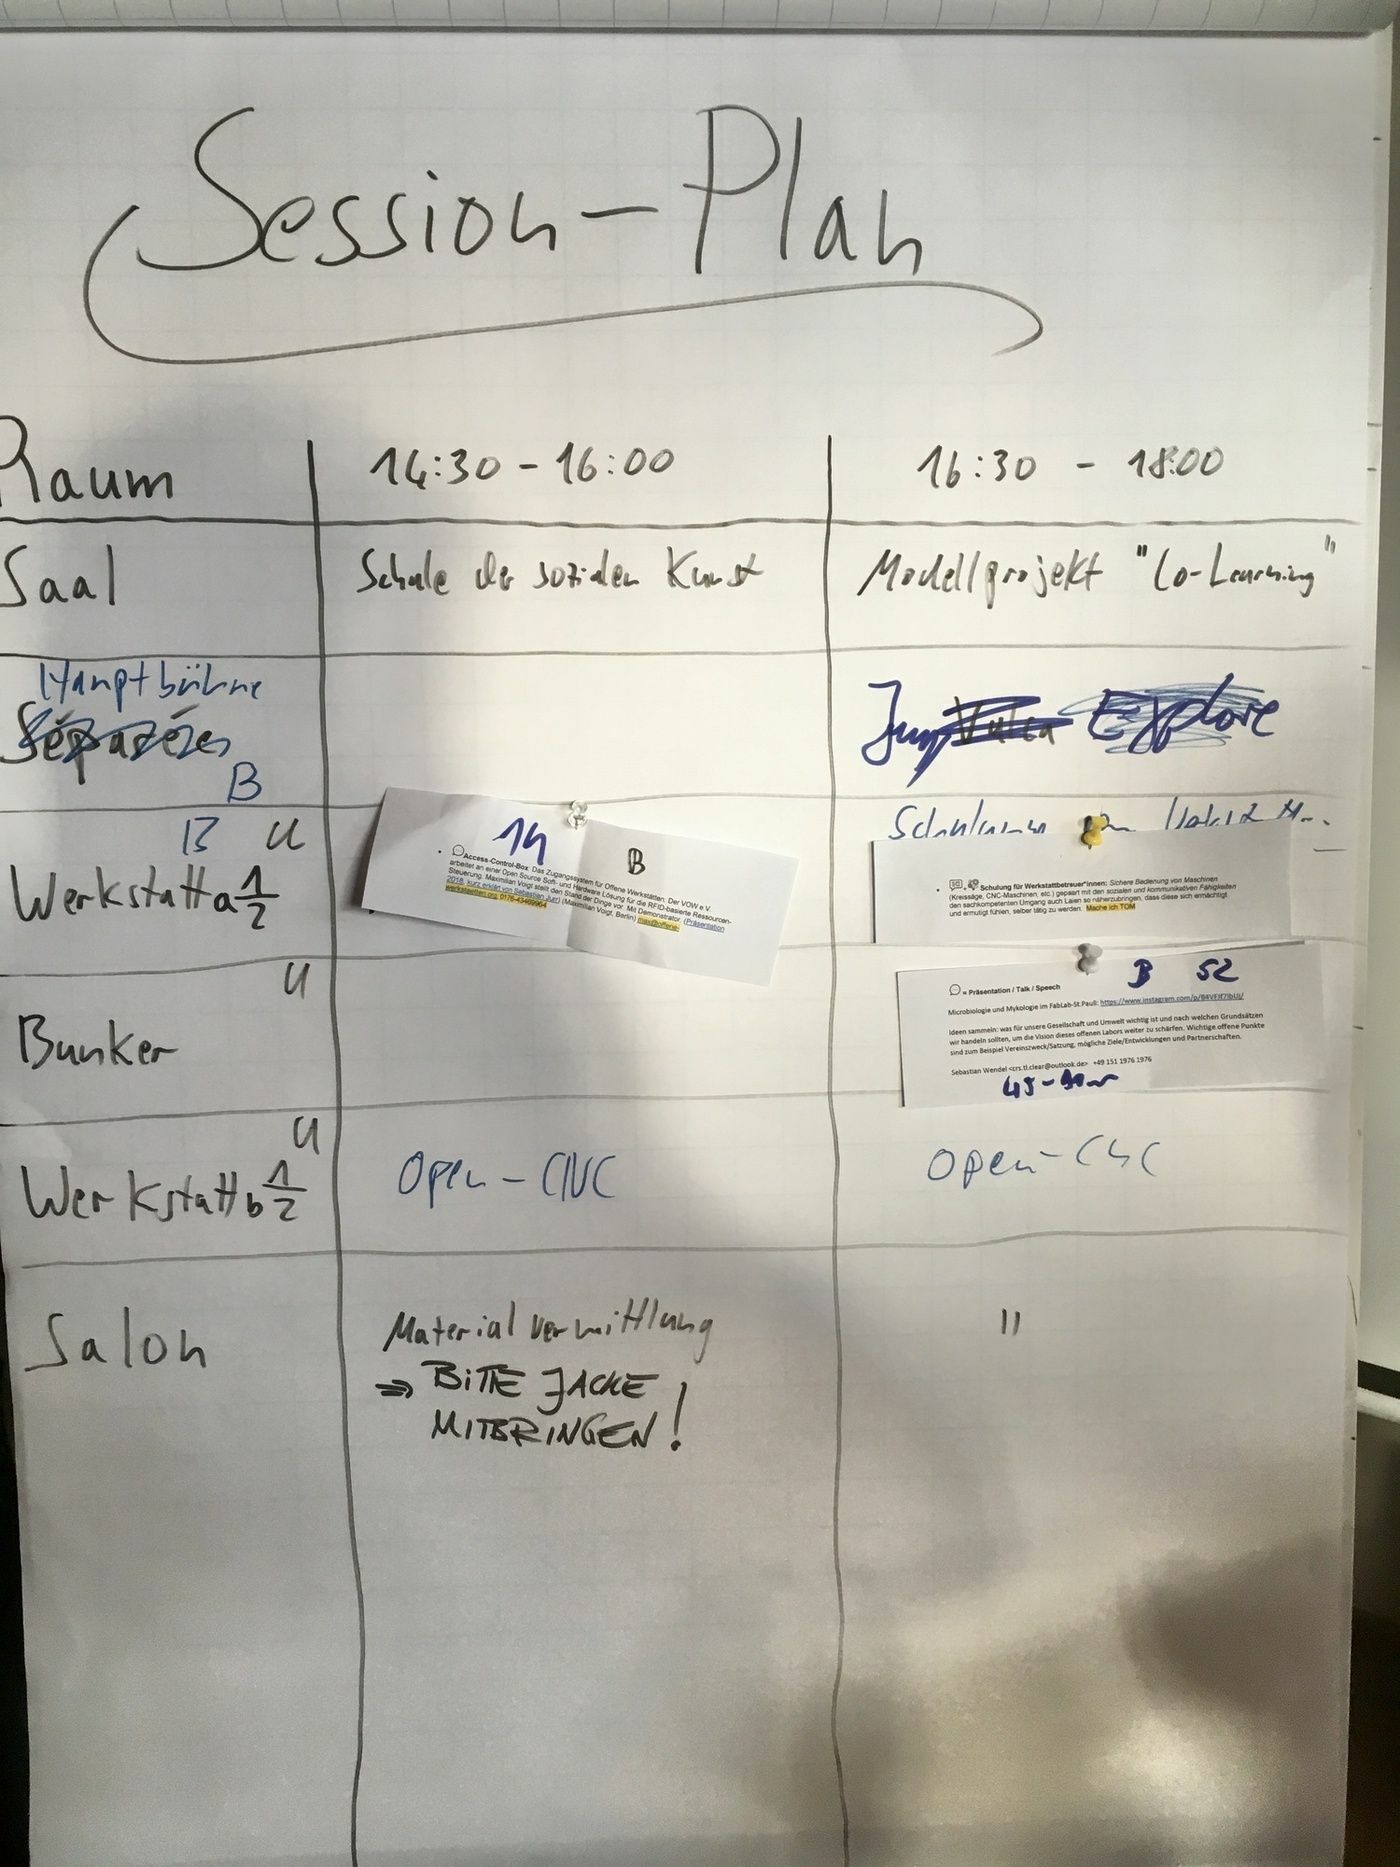 Session-Plan
Raum 14:30 - 16:00 16:30 - 18:00
Saal Schule der sozialen Kunst Modellprojekt "Co-Learning"
Hauptbühne
Séparées
B
Jump Explore
B U
Werkstatt a 1/2
14 B
Access-Control-Box: Das Zugangssystem für Offene Werkstätten. Der VOW e.V.
arbeitet an einer Open Source Soft- und Hardware Lösung für die RFID-basierte Ressourcen-
Steuerung. Maximilian Voigt stellt den Stand der Dinge vor. Mit Demonstrator. (Präsentation
2018, kurz erklärt von Sebastian Jurr) (Maximilian Voigt, Berlin) max@offene-
werkstaetten.org, 0176-43469964
Schulung
Schulung für Werkstattbetreuer*innen: Sichere Bedienung von Maschinen
(Kreissäge, CNC-Maschinen, etc.) gepaart mit den sozialen und kommunikativen Fähigkeiten
den sachkompetenten Umgang auch Laien so näherzubringen, dass diese sich ermächtigt
und ermutigt fühlen, selber tätig zu werden. Mache ich TOM
U
Bunker
B 52
= Präsentation / Talk / Speech
Microbiologie und Mykologie im FabLab-St.Pauli: https://www.instagram.com/p/
Ideen sammeln: was für unsere Gesellschaft und Umwelt wichtig ist und nach welchen Grundsätzen
wir handeln sollten, um die Vision dieses offenen Labors weiter zu schärfen. Wichtige offene Punkte
sind zum Beispiel Vereinszweck/Satzung, mögliche Ziele/Entwicklungen und Partnerschaften.
Sebastian Wendel <crs.tl.clear@outlook.de> +49 151 1976 1976
45-90m
U
Werkstatt b 1/2 Open-CNC Open-CNC
Salon Materialvermittlung "
⇒ BITTE JACKE
MITBRINGEN!